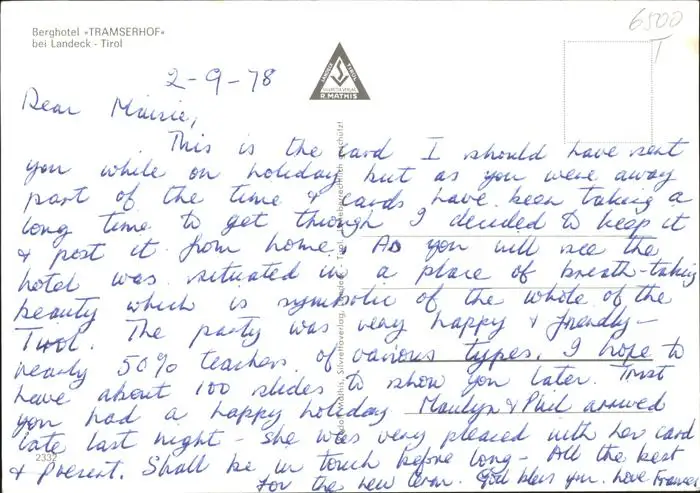 6500
T
Berghotel «TRAMSERHOF»
bei Landeck - Tirol
LANDECK TIROL
SILVRETTA VERLAG
R. MATHIS
2-9-78
Dear Mairie,
This is the card I should have sent
you while on holiday but as you were away
part of the time & cards have been taking a
long time to get through I decided to keep it
& post it from home. As you will see the
hotel was situated in a place of breath-taking
beauty which is symbolic of the whole of the
Tirol. The party was very happy & friendly -
nearly 50% teachers of various types. I hope to
have about 100 slides to show you later. Trust
you had a happy holiday. Marilyn & Phil arrived
late last night - she was very pleased with her card
& present. Shall be in touch before long - All the best
for the new term. God bless you. Love Frances
2332
Mathis, Silvrettaverlag, Landeck - Tirol, Urheberrechtlich geschützt!